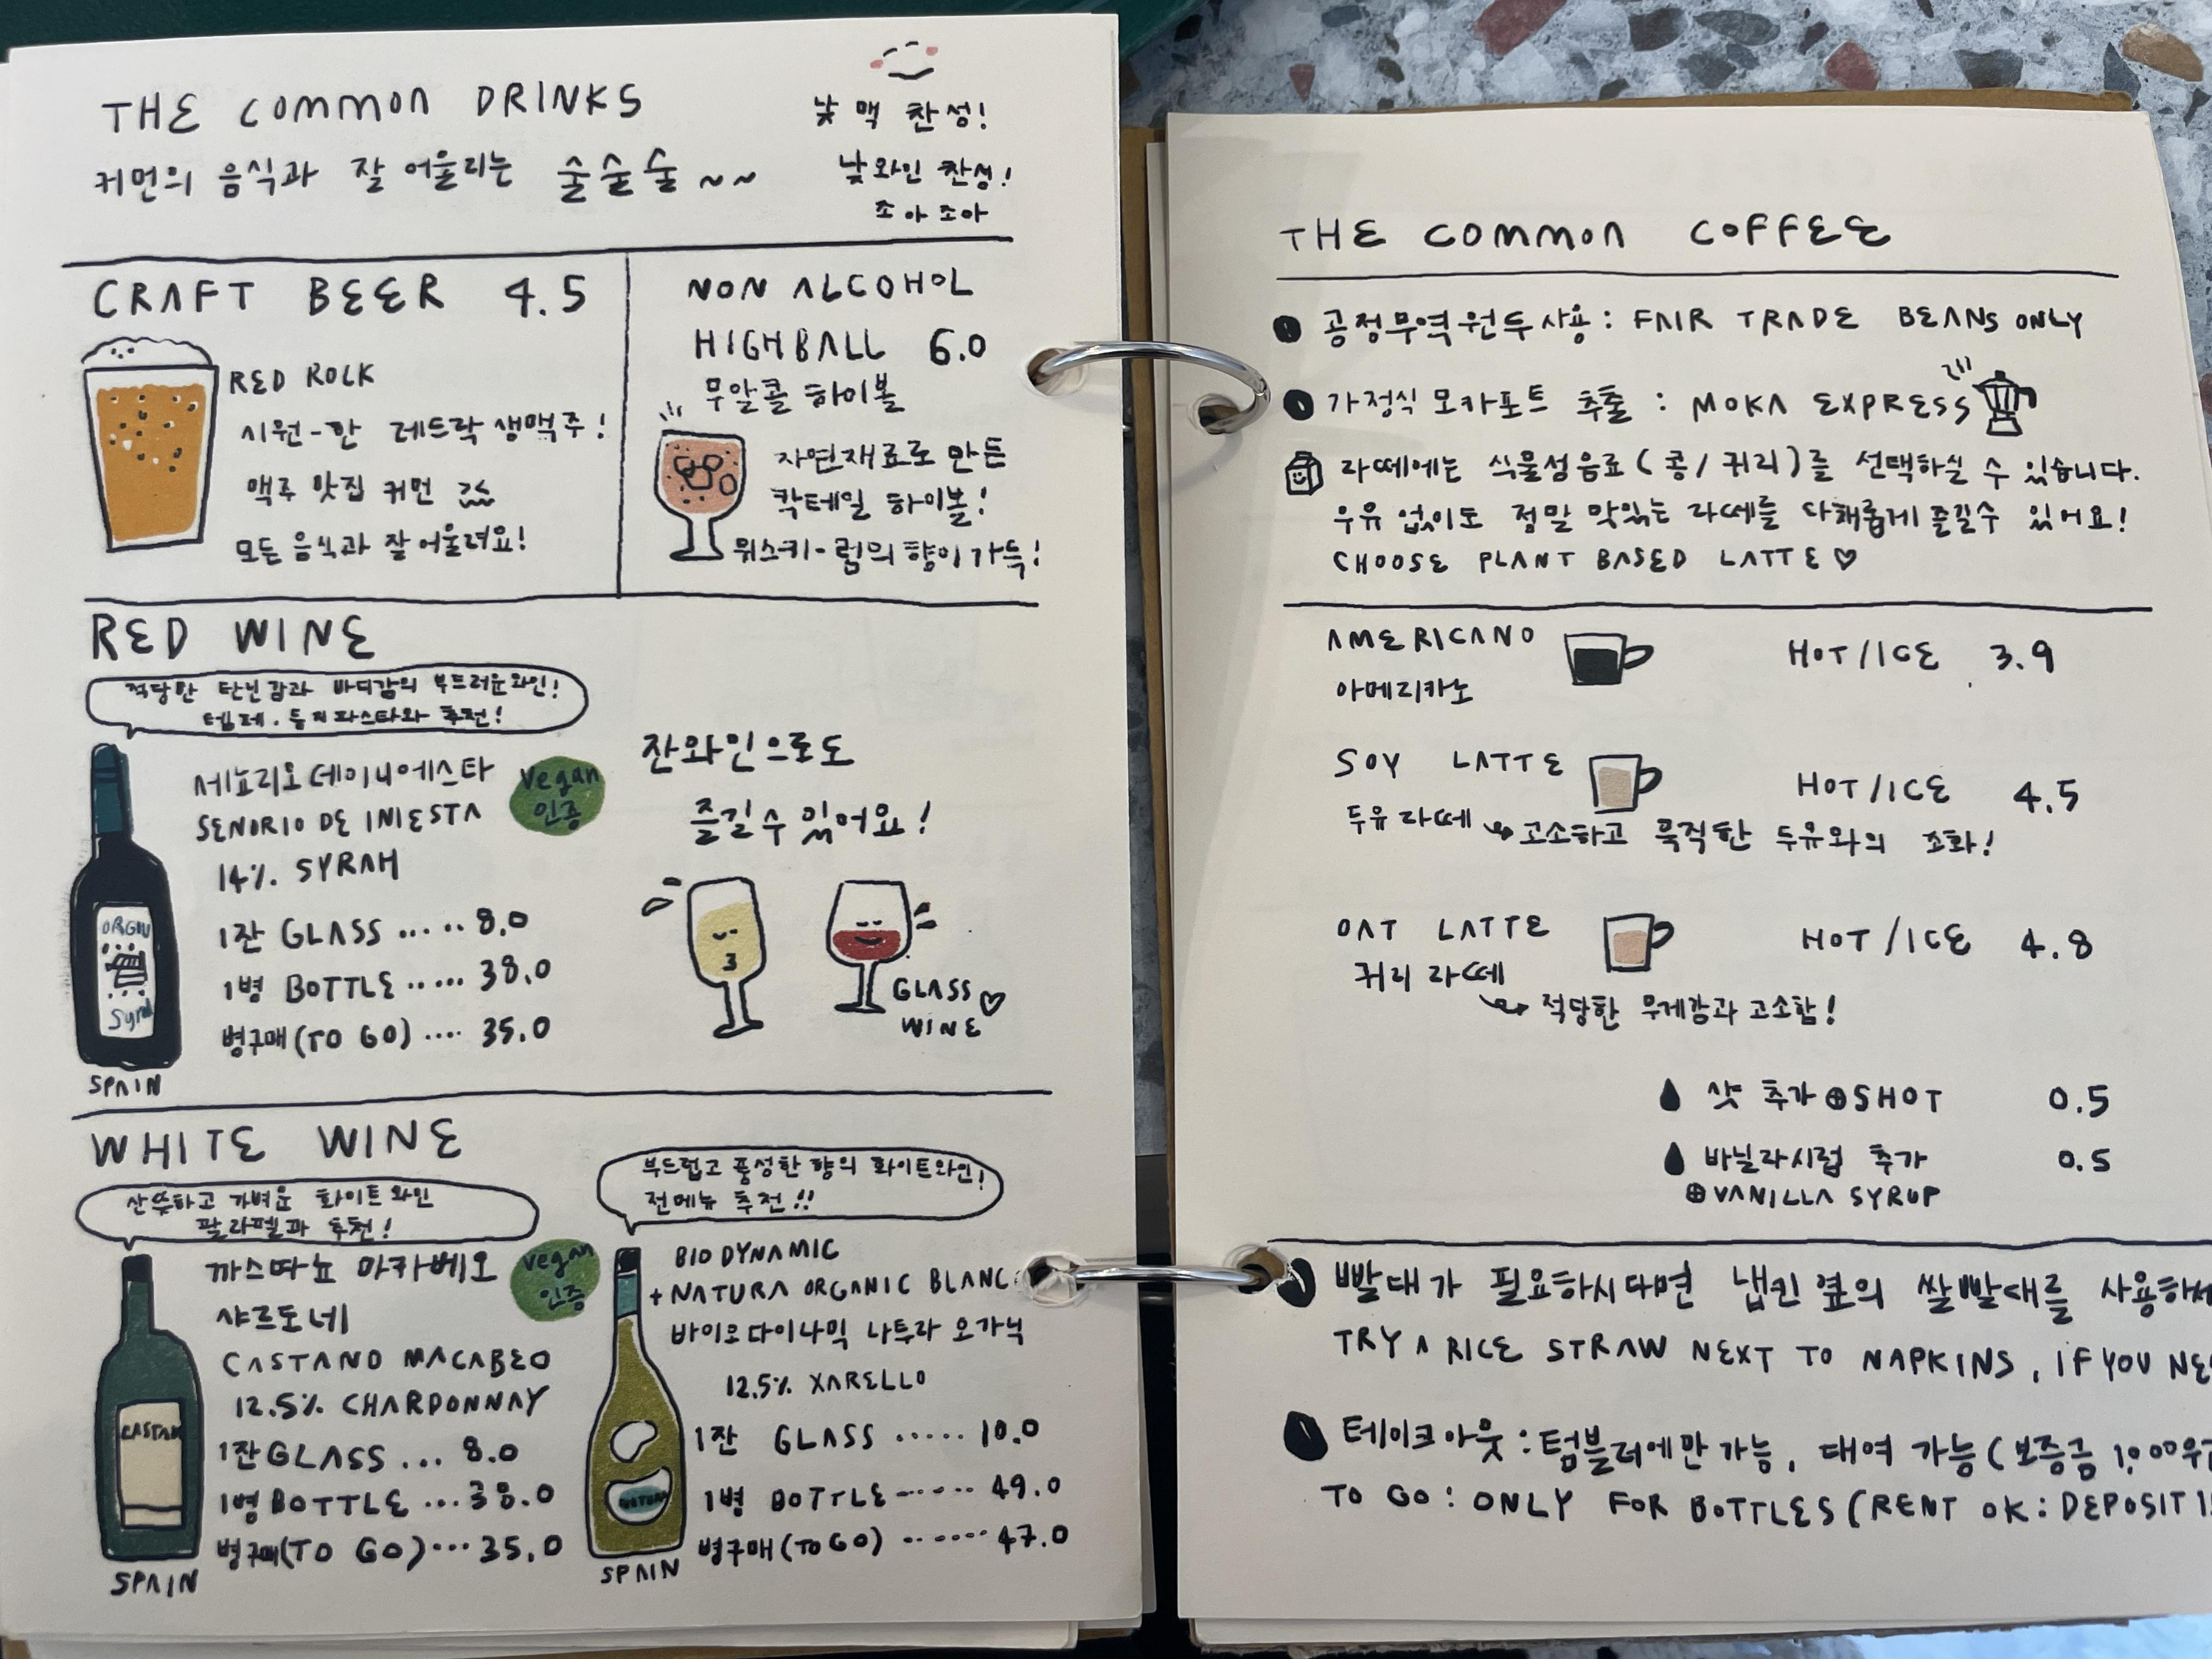 THE COMMON DRINKS
커먼의 음식과 잘 어울리는 술술술 ~~
낮맥 찬성!
낮와인 찬성!
조아조아
CRAFT BEER 4.5
RED ROCK
시원-한 레드락 생맥주!
맥주 맛집 커먼
모든 음식과 잘 어울려요!
NON ALCOHOL
HIGHBALL 6.0
무알콜 하이볼
자연재료로 만든
칵테일 하이볼!
위스키-럼의 향이 가득!
RED WINE
적당한 탄닌감과 바디감의 부드러운와인!
템페.들깨파스타와 추천!
세뇨리오데이니에스타
SENORIO DE INIESTA
14% SYRAH
vegan
인증
1잔 GLASS ..... 8.0
1병 BOTTLE ..... 38.0
병구매(TO GO) .... 35.0
ORGIN
Syrah
SPAIN
잔와인으로도
즐길 수 있어요!
GLASS ♡
WINE
WHITE WINE
산뜻하고 가벼운 화이트 와인
팔라펠과 추천!
까스따뇨 마카베오
샤르도네
CASTANO MACABEO
12.5% CHARDONNAY
vegan
인증
1잔GLASS ... 8.0
1병BOTTLE ...38.0
병구매(TO GO)...35.0
CASTAN
SPAIN
부드럽고 풍성한 향의 화이트와인!
전메뉴 추천!!
BIO DYNAMIC
+NATURA ORGANIC BLANC
바이오다이나믹 나투라 오가닉
12.5% XARELLO
1잔 GLASS ..... 10.0
1병 BOTTLE ..... 49.0
병구매(TO GO) ...... 47.0
NATURA
SPAIN
THE COMMON COFFEE
공정무역원두사용: FAIR TRADE BEANS ONLY
가정식 모카포트 추출 : MOKA EXPRESS
라떼에는 식물성음료(콩/귀리)를 선택하실 수 있습니다.
우유 없이도 정말 맛있는 라떼를 다채롭게 즐길수 있어요!
CHOOSE PLANT BASED LATTE ♡
AMERICANO HOT/ICE 3.9
아메리카노
SOY LATTE HOT/ICE 4.5
두유라떼 고소하고 묵직한 두유와의 조화!
OAT LATTE HOT/ICE 4.8
귀리 라떼
적당한 무게감과 고소함!
샷 추가 ⊕SHOT 0.5
바닐라시럽 추가 0.5
⊕VANILLA SYRUP
빨대가 필요하시다면 냅킨 옆의 쌀빨대를 사용하세
TRY A RICE STRAW NEXT TO NAPKINS, IF YOU NE
테이크아웃:텀블러에만 가능, 대여 가능(보증금 1,000
TO GO: ONLY FOR BOTTLES(RENT OK: DEPOSIT